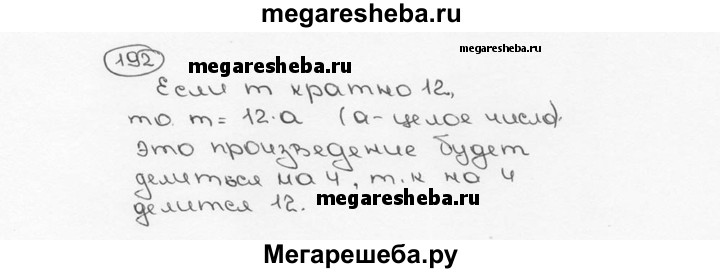 megaresheba.ru
192
megaresheba.ru
megaresheba.ru
Если m кратно 12,
то m = 12·a (a – целое число).
Это произведение будет
делиться на 4, т.к на 4
делится 12.
megaresheba.ru
Мегарешеба.ру